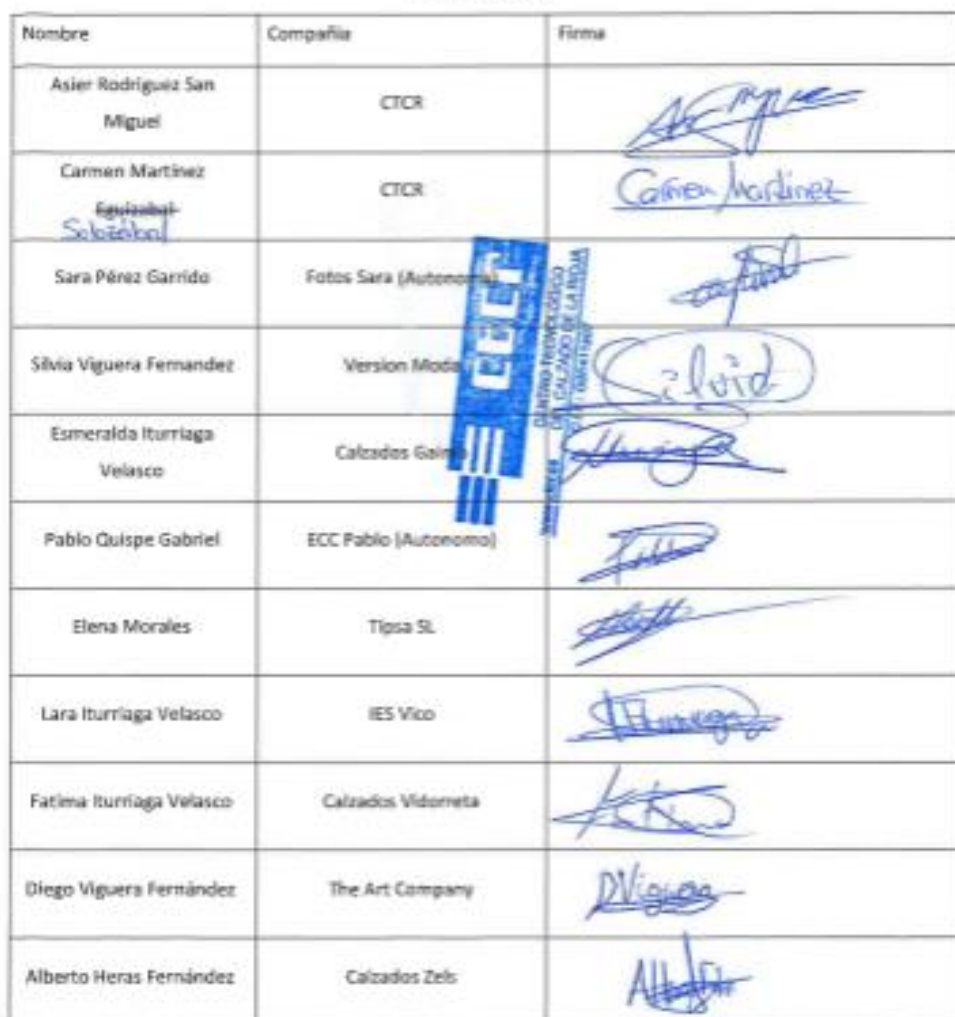 Nombre Compañia Firma
Asier Rodríguez San
Miguel
CTCR
Carmen Martínez
Eguizabal
CTCR
Carmen Martinez
Sara Pérez Garrido Fotos Sara (Autonomo)
Silvia Viguera Fernandez Version Moda Silvia
Esmeralda Iturriaga
Velasco
Calzados
CENTRO TECNOLÓGICO
DEL CALZADO DE LA RIOJA
Pablo Quispe Gabriel ECC Pablo (Autonomo)
Elena Morales Tipsa SL
Lara Iturriaga Velasco IES Vico
Fatima Iturriaga Velasco Calzados Vidorreta
Diego Viguera Fernández The Art Company DViguera
Alberto Heras Fernández Calzados Zels